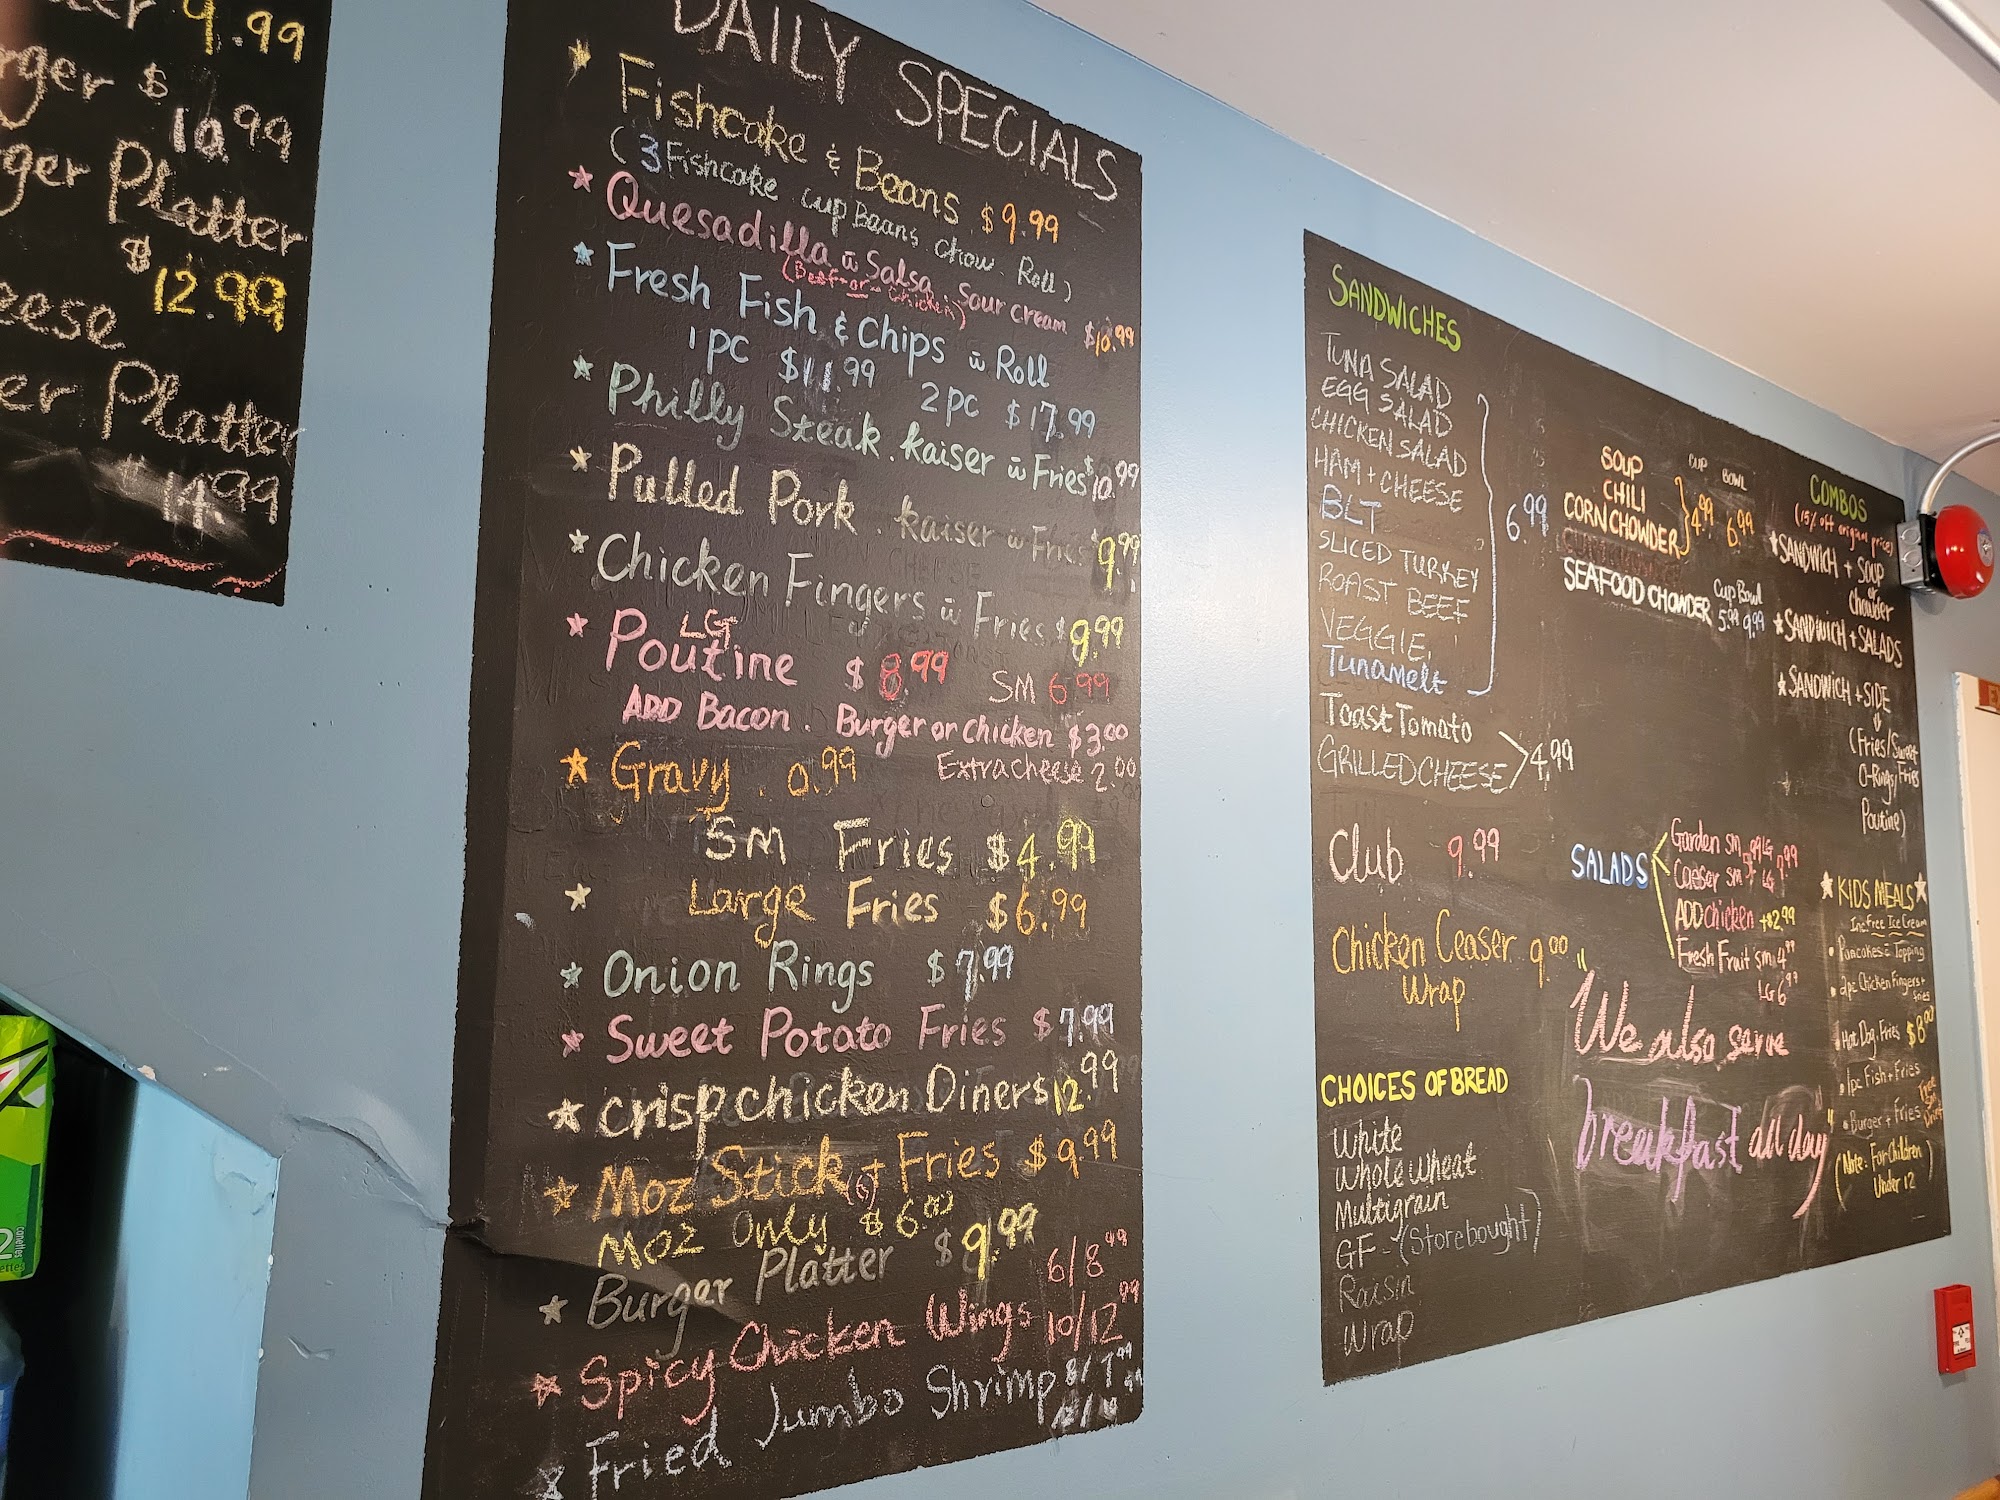 9.99
$
10.99
Platter
$
12.99
Platter
14.99
DAILY SPECIALS
Fishcake & Beans $9.99
(3 Fishcake. cup Beans chow. Roll)
Quesadilla w̄ Salsa Sour cream $10.99
(Beef-or-Chicken)
Fresh Fish & Chips w̄ Roll
1 pc $11.99 2 pc $17.99
Philly Steak. kaiser w̄ Fries $10.99
Pulled Pork. kaiser w̄ Fries $9.99
Chicken Fingers w̄ Fries $9.99
LG
Poutine $8.99 SM 6.99
ADD Bacon. Burger or chicken $3.00
Gravy. 0.99 Extra cheese 2.00
SM Fries $4.99
Large Fries $6.99
Onion Rings $7.99
Sweet Potato Fries $7.99
crisp chicken Diner $12.99
Moz Stick (6) + Fries $9.99
Moz Only $6.00
Burger Platter $9.99
6/8.99
Spicy Chicken Wings 10/12.99
Fried Jumbo Shrimp 8/7.99
SANDWICHES
TUNA SALAD
EGG SALAD
CHICKEN SALAD
HAM + CHEESE
BLT 6.99
SLICED TURKEY
ROAST BEEF
VEGGIE
Tunamelt
Toast Tomato
GRILLED CHEESE 4.99
Club 9.99
Chicken Ceaser 9.00
Wrap
CHOICES OF BREAD
White
Whole Wheat
Multigrain
GF - (Storebought)
Raisin
Wrap
CUP BOWL
SOUP
CHILI 4.99 6.99
CORN CHOWDER
SEAFOOD CHOWDER Cup Bowl
5.99 9.99
SALADS
Garden SM 5.99 LG 9.99
Caeser SM LG
ADD chicken +$2.99
Fresh Fruit SM 4.99
LG 6.99
"We also serve
breakfast all day"
COMBOS
(15% off original price)
SANDWICH + SOUP
or
Chowder
SANDWICH + SALADS
SANDWICH + SIDE
(Fries/Sweet
O-Rings/Fries
Poutine)
KIDS MEALS
Inc. Free Ice Cream
Pancakes Topping
2pc Chicken Fingers +
fries
Hot Dog. Fries $8.00
1pc Fish + Fries
Burger + Fries
(Note: For Children
Under 12)